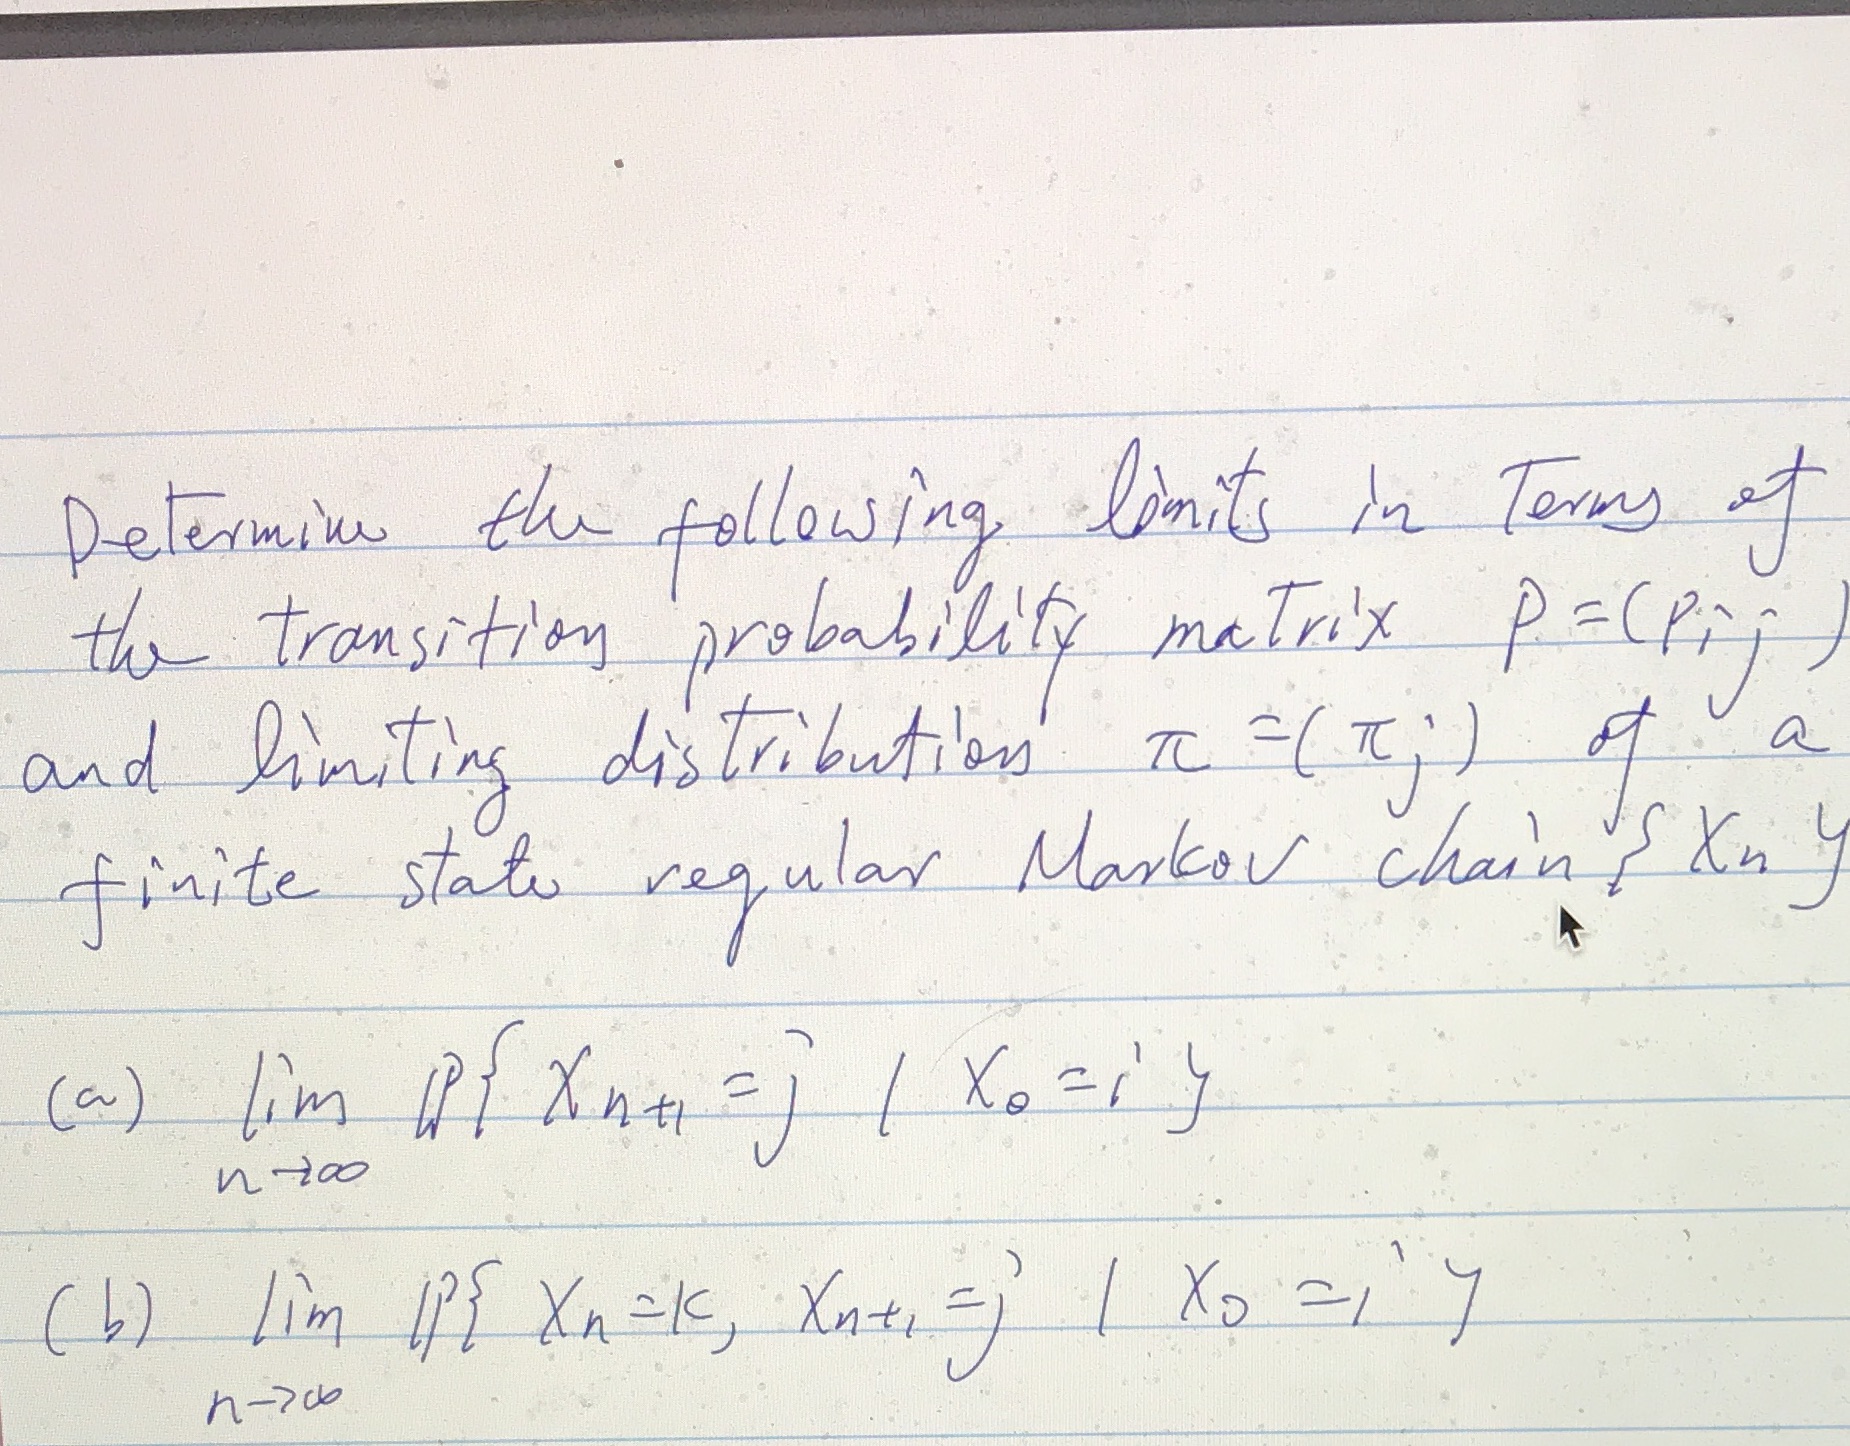 Determine the following limits in Terms of
the transition probability matrix P = (Pij)
and limiting distribution π = (πj) of a
finite state regular Markov chain {Xn}
(a) lim ℙ{ Xn+1 = j | X0 = i }
n→∞
(b) lim ℙ{ Xn = k, Xn+1 = j | X0 = i }
n→∞